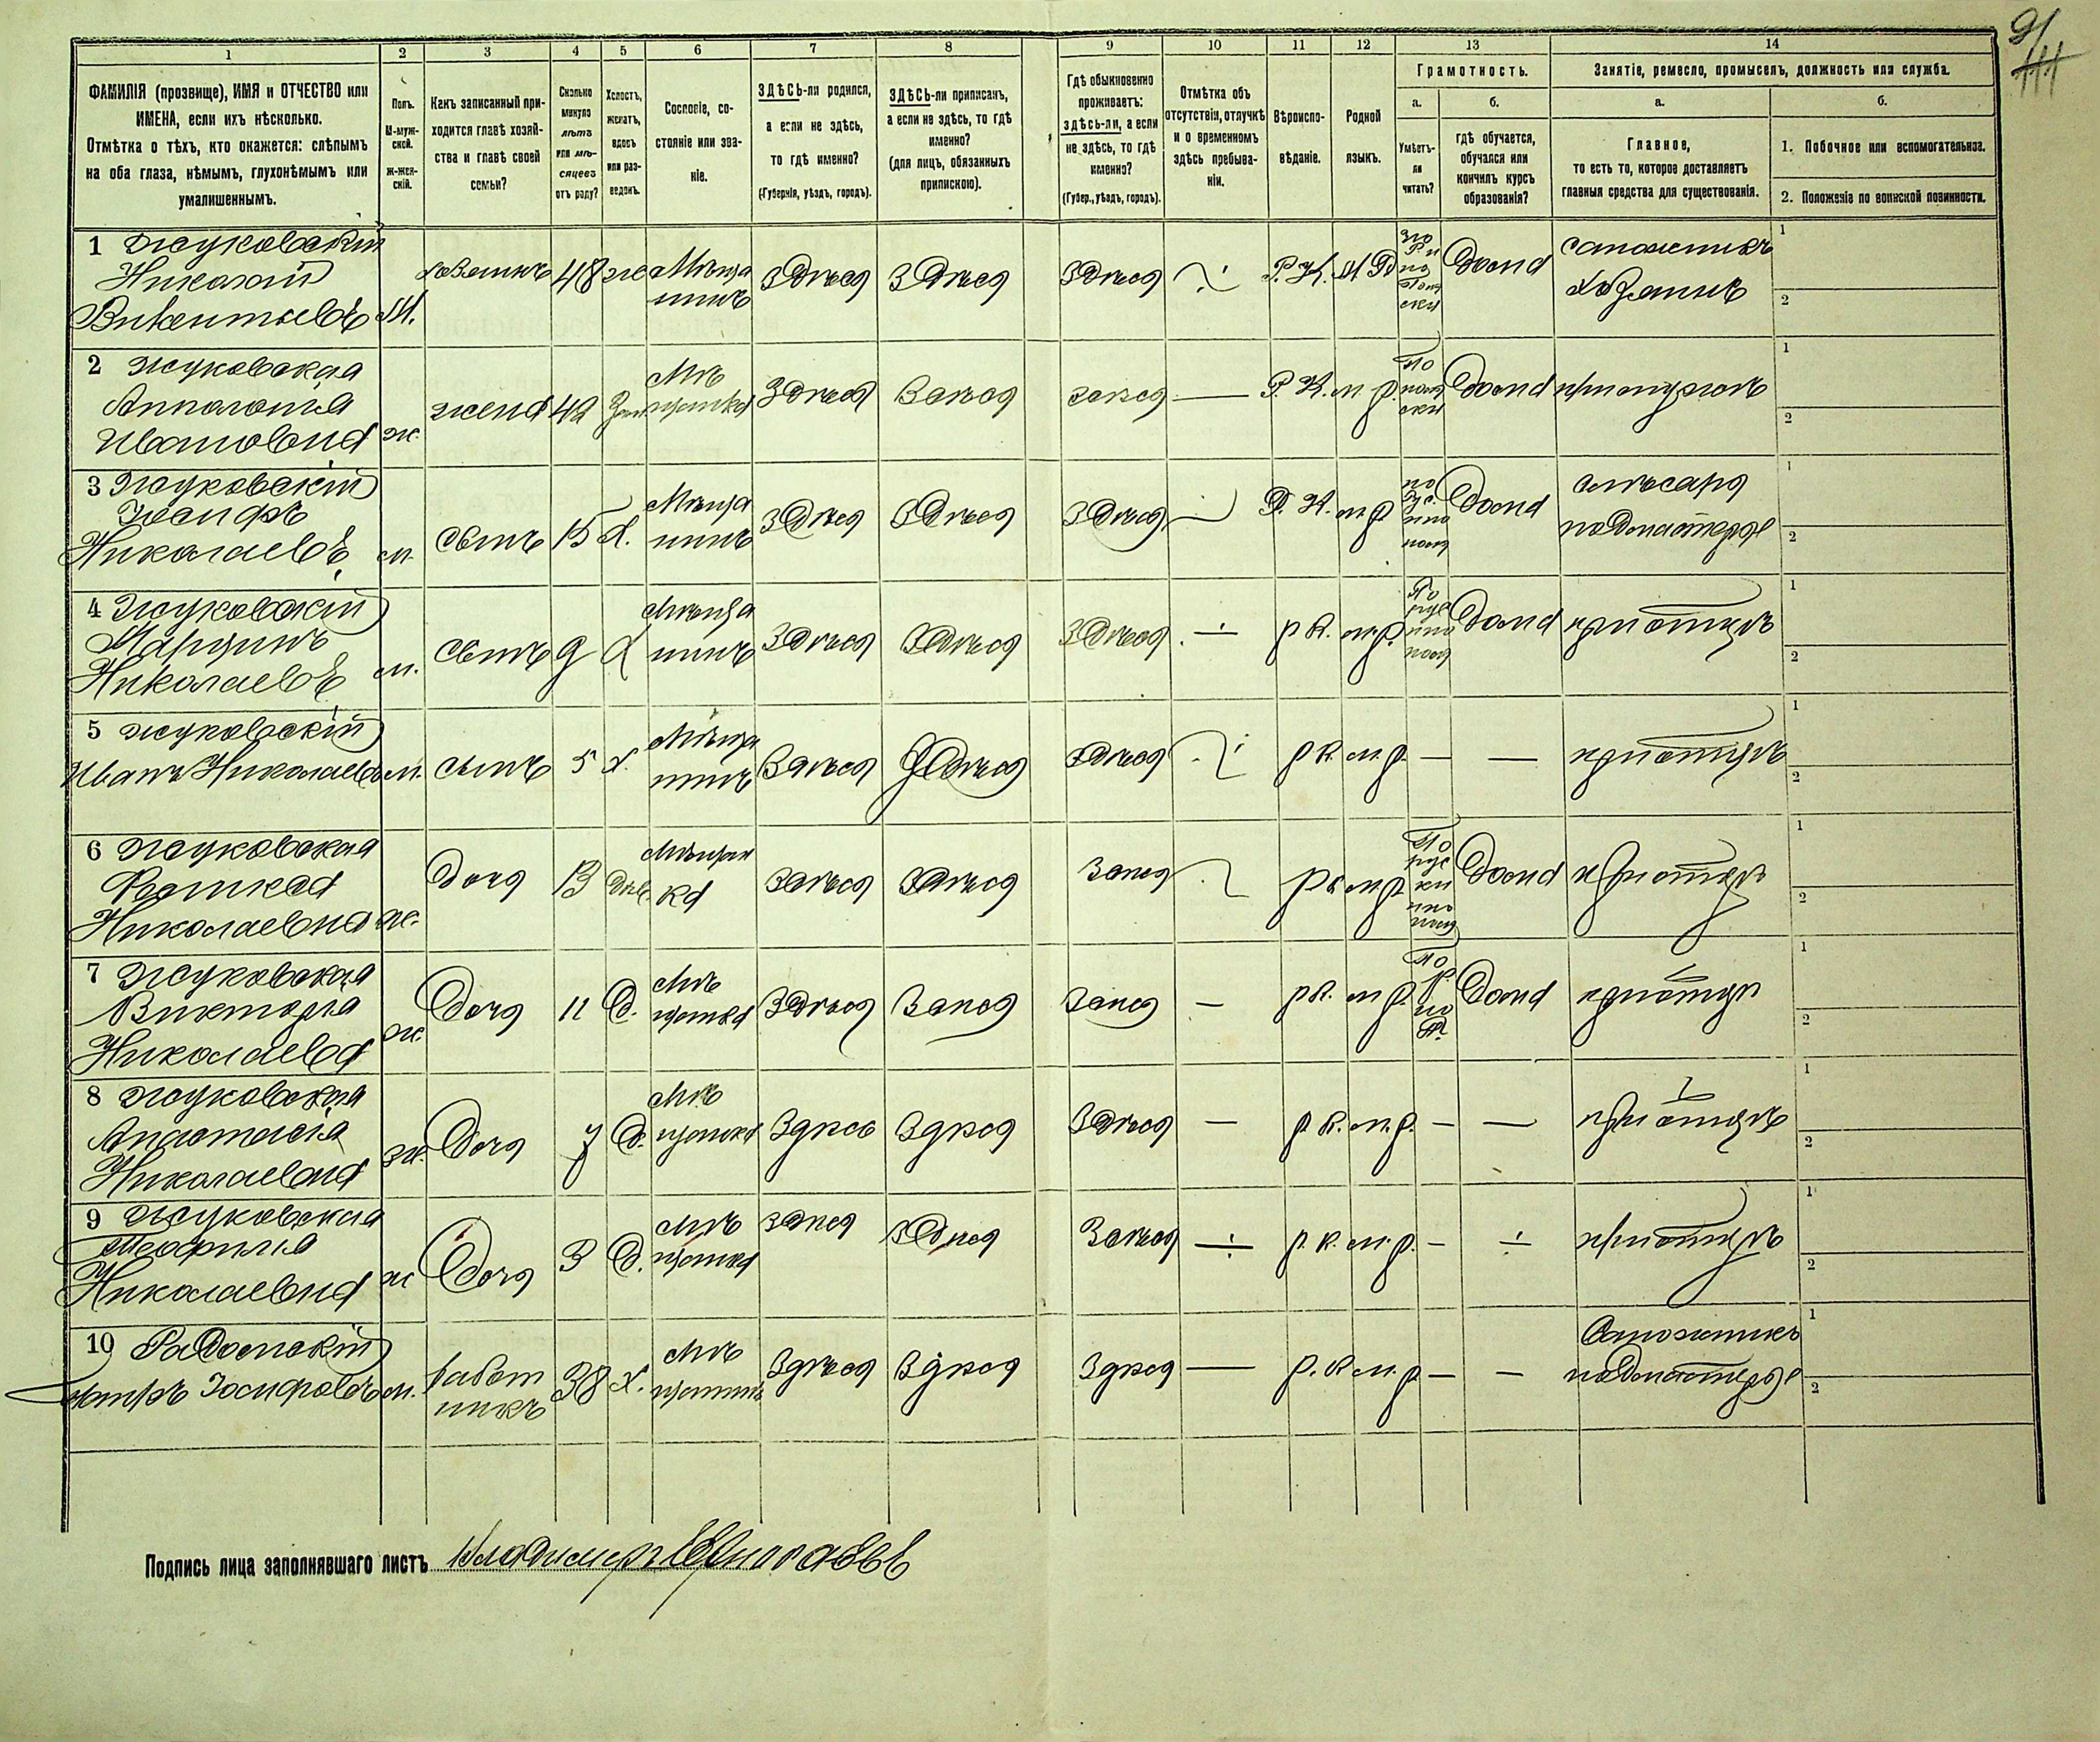 9
1 2 3 4 5 6 7 8 9 10 11 12 13 14
ФАМИЛІЯ (прозвище), ИМЯ и ОТЧЕСТВО или
ИМЕНА, если ихъ нѣсколько.
Отмѣтка о тѣхъ, кто окажется: слѣпымъ
на оба глаза, нѣмымъ, глухонѣмымъ или
умалишеннымъ.
Полъ.
М-муж-
ской.
Ж-жен-
скій.
Какъ записанный при-
ходится главѣ хозяй-
ства и главѣ своей
семьи?
Сколько
минуло
лѣтъ
или мѣ-
сяцевъ
отъ роду?
Холостъ,
женатъ,
вдовъ
или раз-
веденъ.
Сословіе, со-
стояніе или зва-
ніе.
ЗДѢСЬ-ли родился,
а если не здѣсь,
то гдѣ именно?
(Губернія, уѣздъ, городъ).
ЗДѢСЬ-ли приписанъ,
а если не здѣсь, то гдѣ
именно?
(для лицъ, обязанныхъ
припискою).
Гдѣ обыкновенно
проживаетъ:
здѣсь-ли, а если
не здѣсь, то гдѣ
именно?
(Губер., уѣздъ, городъ).
Отмѣтка объ
отсутствіи, отлучкѣ
и о временномъ
здѣсь пребыва-
ніи.
Вѣроиспо-
вѣданіе.
Родной
языкъ.
Грамотность.
а.
Умѣетъ-
ли
читать?
б.
гдѣ обучается,
обучался или
кончилъ курсъ
образованія?
Занятіе, ремесло, промыселъ, должность или служба.
а.
Главное,
то есть то, которое доставляетъ
главныя средства для существованія.
б.
1. Побочное или вспомогательное.
2. Положеніе по воинской повинности.
1 Жуковскій
Николай
Викентьевъ М. хозяинъ 48 ж Мѣща
нинъ Здѣся Здѣся Здѣся Р. К. дома сапожникъ
хозяинъ 1 2
2 Жуковская
Апполонія
Ивановна ж. жена 42 Зам Мѣ
щанка Здѣся Здѣся Здѣся — Р. К. м. р. По
пол
ски дома 1 2
3 Жуковскій
Іосифъ
Николаевъ м. сынъ 15 х. Мѣща
нинъ Здѣся Здѣся Здѣся Р. К. м р дома слѣсаря
подмастерье 1 2
4 Жуковскій
Марцинъ
Николаевъ м. сынъ 9 х Мѣща
нинъ Здѣся Здѣся Здѣся р К. м.р. дома при отцѣ 1 2
5 Жуковскій
Иванъ Николаевъ м. сынъ 5 х. Мѣща
нинъ Здѣся Здѣся Здѣся р К. м. р. — — при отцѣ 1 2
6 Жуковская
Николаевна ж. доча 13 дѣв. Мѣщан
ка Здѣся Здѣся Здѣся р к м р дома при отцѣ 1 2
7 Жуковская
Викторія
Николаева ж. доча 11 д. Мѣ
щанка Здѣся Здѣся Здѣся — р К. м р. дома при отцѣ 1 2
8 Жуковская
Анастасія
Николаевна ж. доча 7 д. Мѣ
щанка Здѣсь Здѣся Здѣся — р. К. м. р. — — при отцѣ 1 2
9 Жуковская
Теофилія
Николаевна ж доча 3 д. Мѣ
щанка Здѣся Здѣся Здѣся р. К. м. р. — при отцѣ 1 2
10 Радомскій
Іосифовъ м. работ
никъ 38 х. Мѣ
щанинъ Здѣся Здѣся Здѣся — р. К м. р — — Сапожникъ
подмастерье 1 2
Подпись лица заполнявшаго листъ Владимеръ